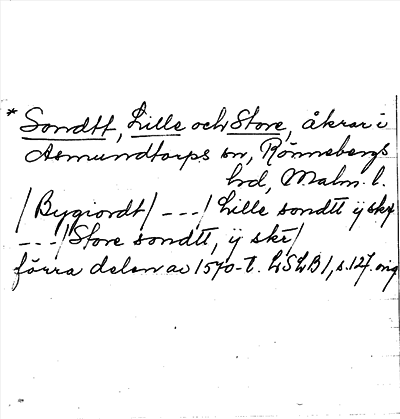 * Sondtt, Lille och Store, åkrar i
Asmundtorps sn, Rönnebergs
hrd, Malm. l.
/Bygiordt/ --- / Lille sondtt ij skr
--- / Store sondtt, ij skr /
förra delen av 1570-t. LSLB 1, s. 127. orig